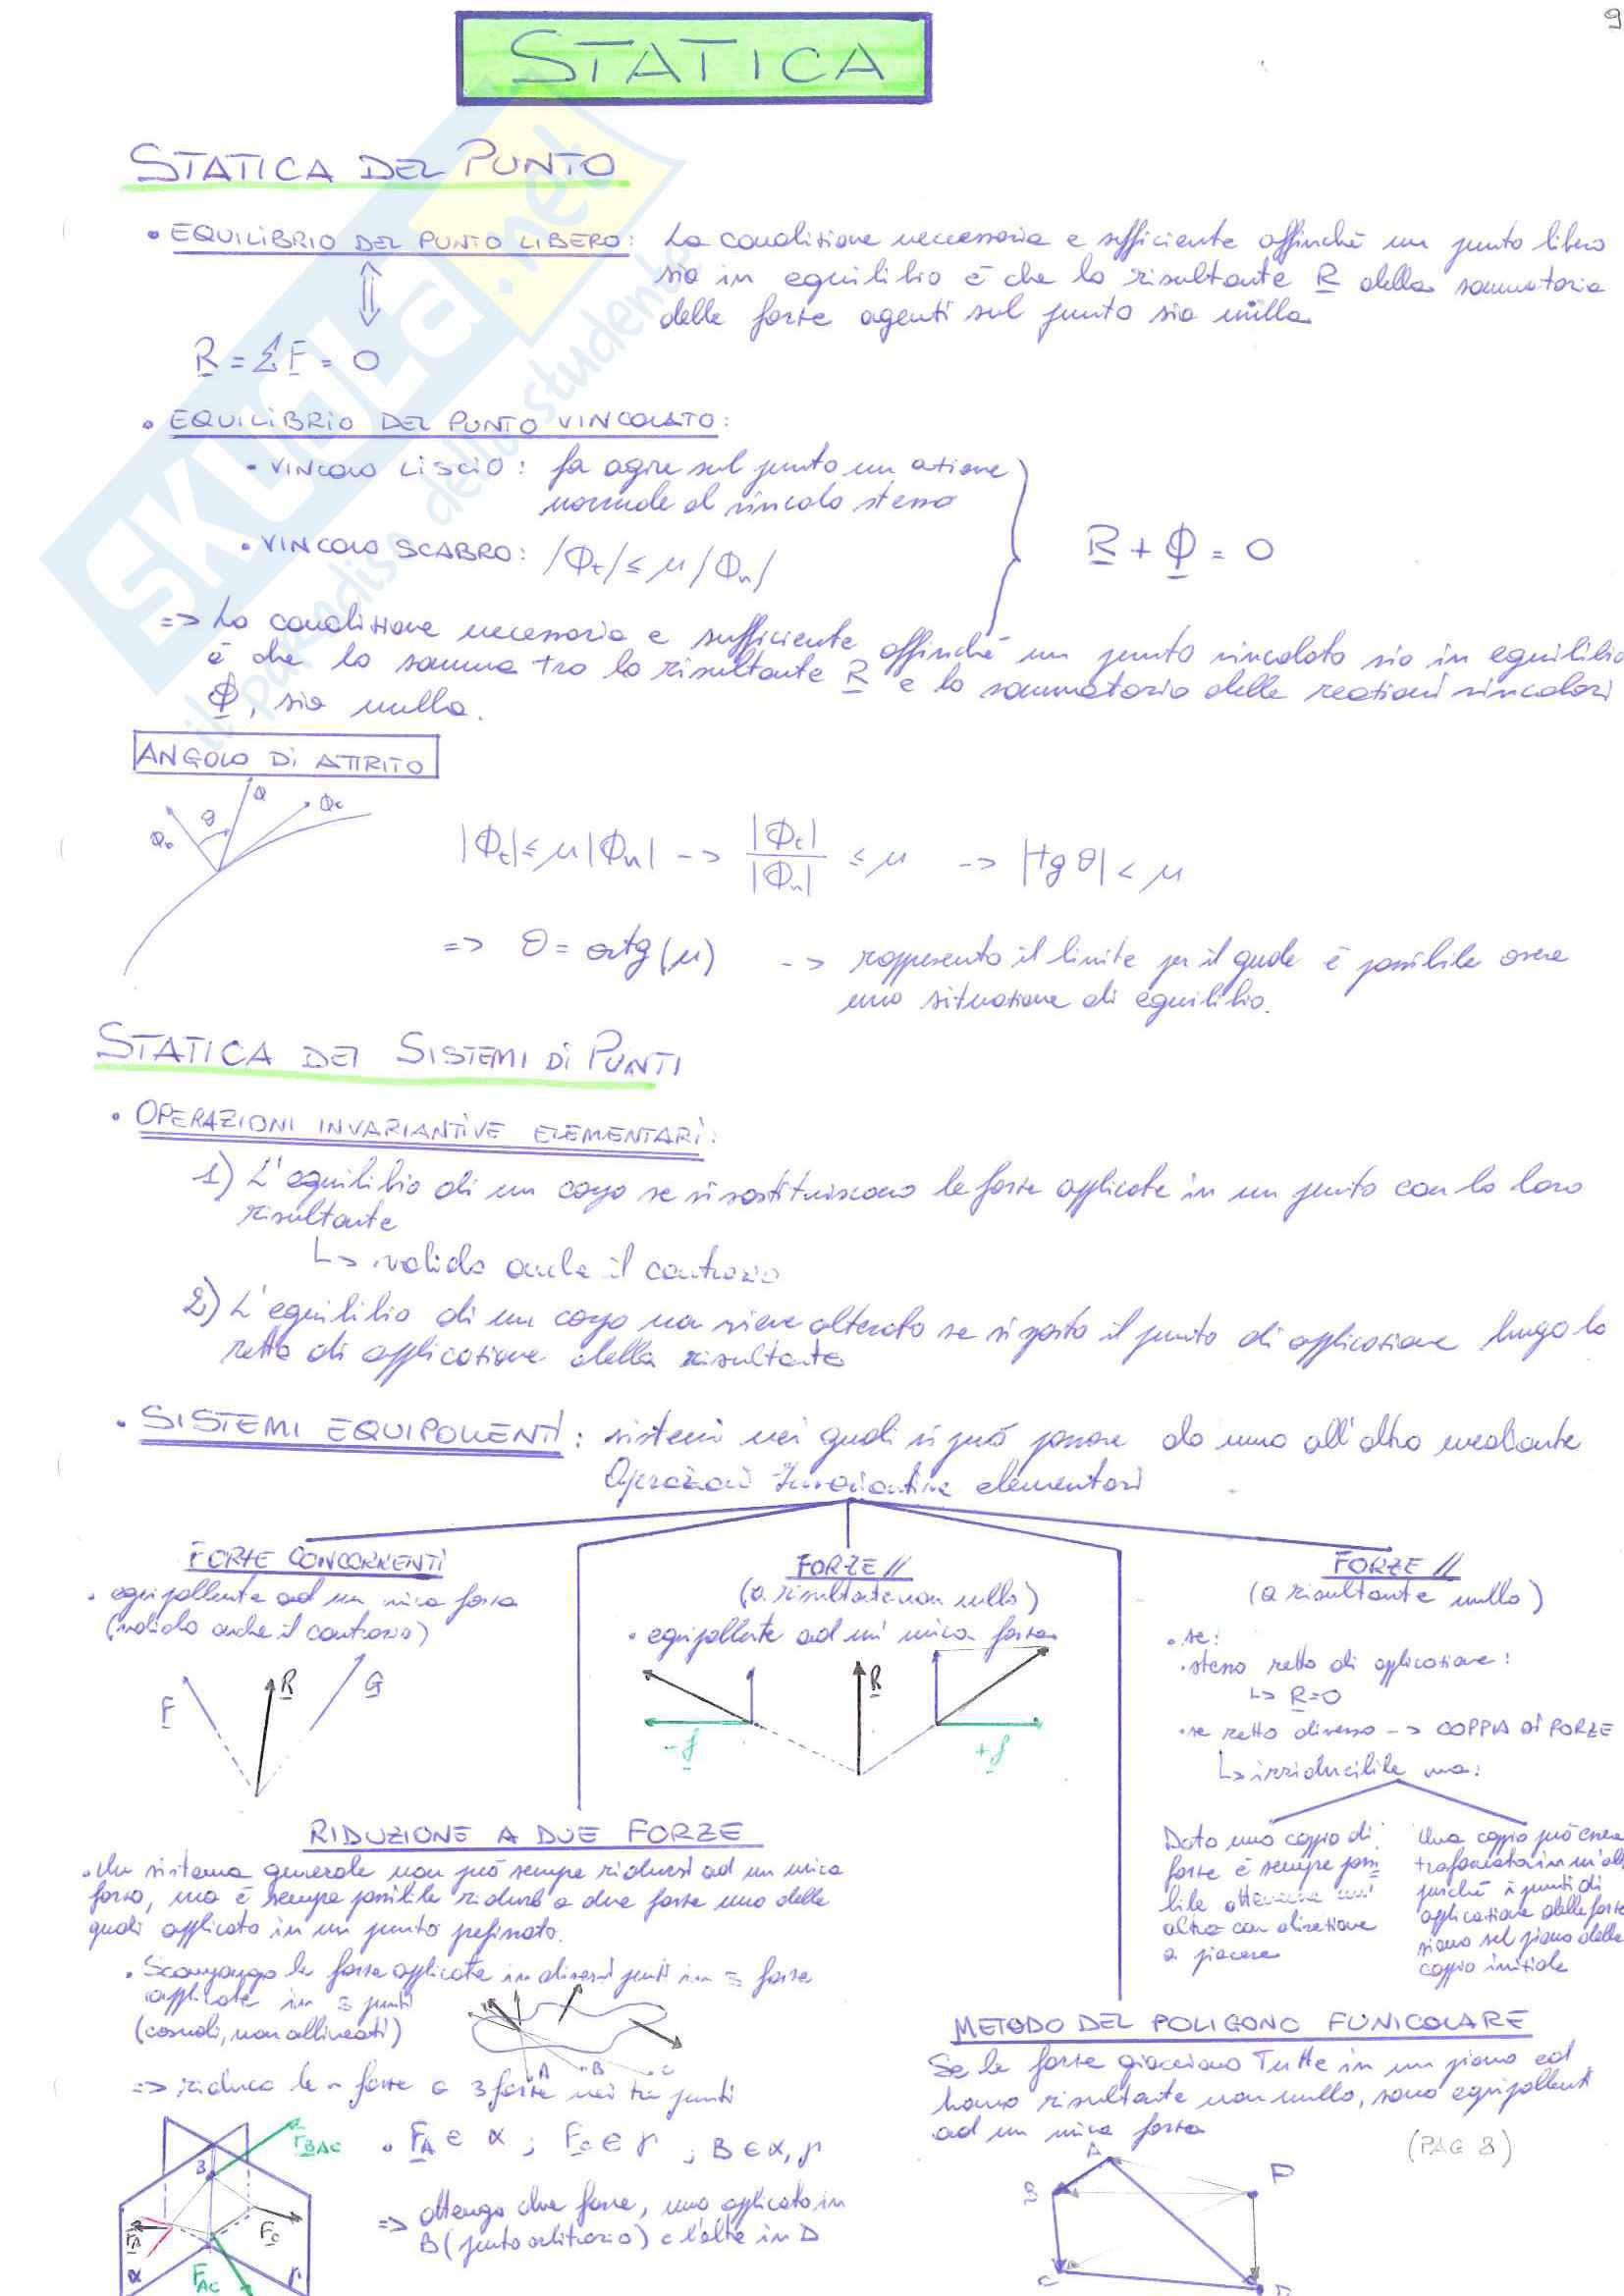 9
STATICA
STATICA DEL PUNTO
• EQUILIBRIO DEL PUNTO LIBERO: La condizione necessaria e sufficiente affinché un punto libero
sia in equilibrio è che la risultante R della sommatoria
delle forze agenti sul punto sia nulla
R = ΣF = 0
• EQUILIBRIO DEL PUNTO VINCOLATO:
• VINCOLO LISCIO: fa agire sul punto un azione
normale al vincolo stesso
• VINCOLO SCABRO: |Φt| ≤ μ |Φn|
R + Φ = 0
=> La condizione necessaria e sufficiente affinché un punto vincolato sia in equilibrio
è che la somma tra la risultante R e la sommatoria delle reazioni vincolari
Φ, sia nulla.
ANGOLO DI ATTRITO
Φn θ Φ Φt
|Φt| ≤ μ|Φn| -> |Φt| / |Φn| ≤ μ -> |tg θ| < μ
=> θ = artg(μ) -> rappresenta il limite per il quale è possibile avere
una situazione di equilibrio.
STATICA DEI SISTEMI DI PUNTI
• OPERAZIONI INVARIANTIVE ELEMENTARI:
1) L'equilibrio di un corpo se si sostituiscono le forze applicate in un punto con la loro
risultante
↳ valido anche il contrario
2) L'equilibrio di un corpo non viene alterato se si sposta il punto di applicazione lungo la
retta di applicazione della risultante
• SISTEMI EQUIPOLLENTI: sistemi nei quali si può passare da uno all'altro mediante
Operazioni Invariantive elementari
FORZE CONCORRENTI
• equipollente ad un unica forza
(valido anche il contrario)
F R G
FORZE //
(a risultante non nulla)
• equipollente ad un' unica forza
-f R +f
FORZE //
(a risultante nulla)
• se:
• stessa retta di applicazione:
↳ R=0
• se retta diversa -> COPPIA DI FORZE
↳ irriducibile ma:
Data una coppia di
forze è sempre possi=
bile ottenerne un'
altra con direzione
a piacere
Una coppia può essere
trasformata in un'al
purché i punti di
applicazione delle forze
siano sul piano della
coppia iniziale
RIDUZIONE A DUE FORZE
• Un sistema generale non può sempre ridursi ad un unica
forza, ma è sempre possibile ridurlo a due forze una delle
quali applicata in un punto prefissato.
• Scompongo le forze applicate in diversi punti in 3 forze
applicate in 3 punti
(casuali, non allineati)
A B C
=> riduco le n forze a 3 forze nei tre punti
• FA ∈ α ; FC ∈ γ ; B ∈ α, γ
=> ottengo due forze, una applicata in
B (punto arbitrario) e l'altra in D
FBAC B FA FC α FAC γ
METODO DEL POLIGONO FUNICOLARE
Se le forze giacciono Tutte in un piano ed
hanno risultante non nullo, sono equipollenti
ad un unica forza
(PAG 8)
A B P C D
SKUOLA.net
il paradiso dello studente